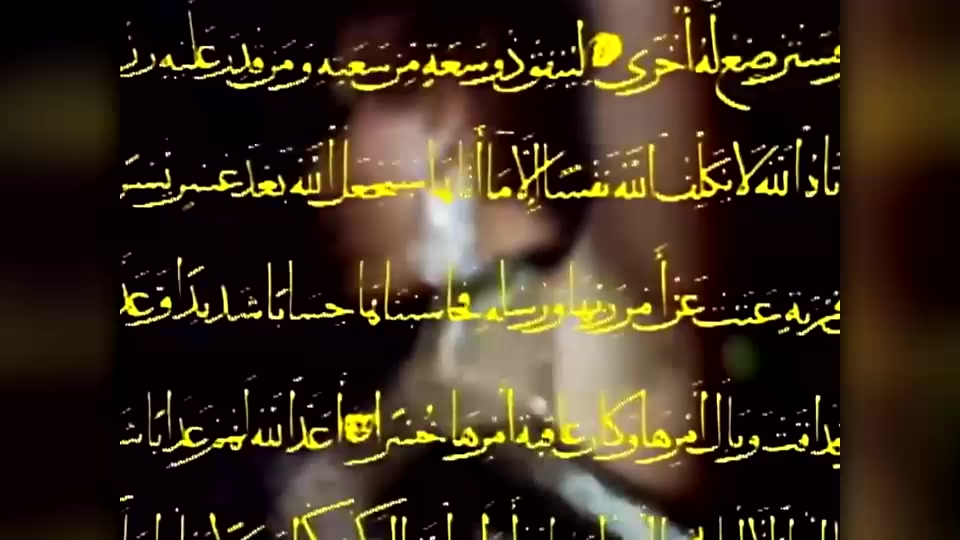 فسترضع له أخرى لينفق ذو سعة من سعته ومن قدر عليه رز
ما ذا الله لا يكلف الله نفسا إلا ما آتاها سيجعل الله بعد عسر يسر
قرية عتت عن أمر ربها ورسله فحاسبناها حسابا شديدا وعذ
فذاقت وبال أمرها وكان عاقبة أمرها خسرا أعد الله لهم عذابا شد